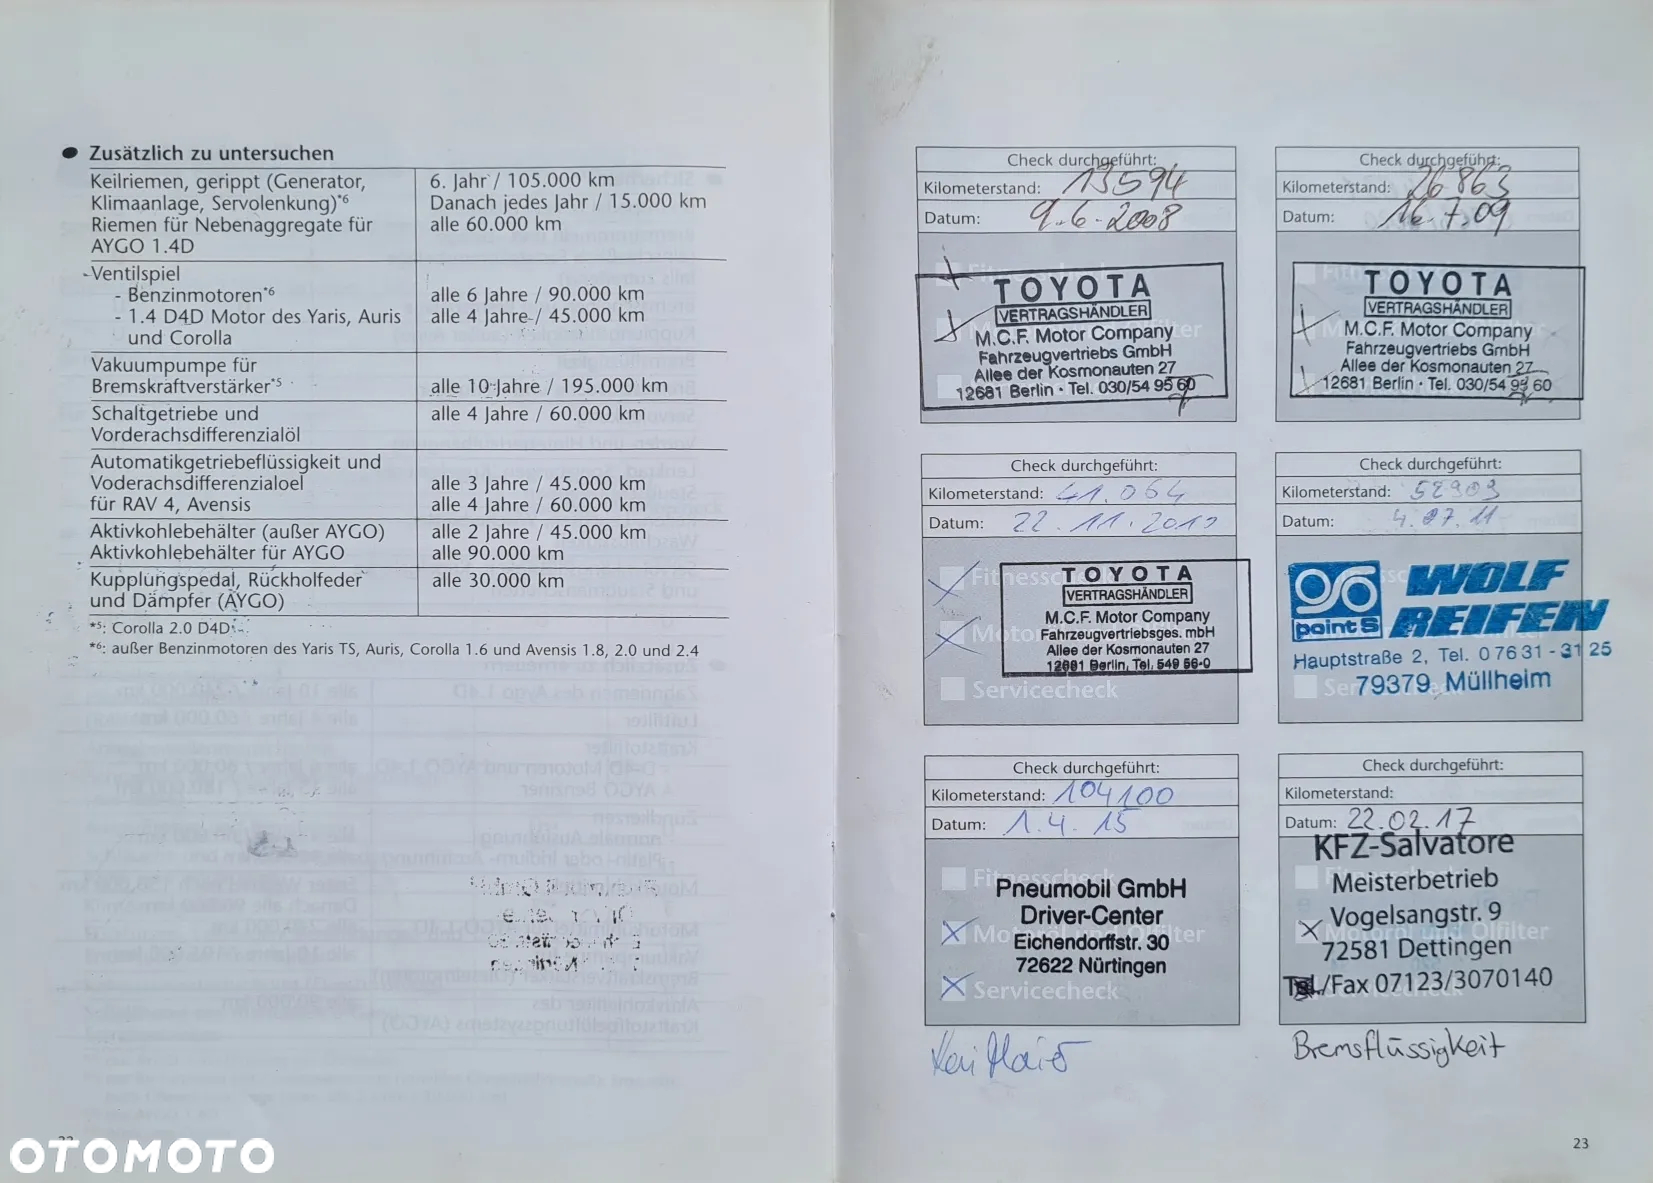 Zusätzlich zu untersuchen
Keilriemen, gerippt (Generator,
Klimaanlage, Servolenkung)*6
6. Jahr / 105.000 km
Danach jedes Jahr / 15.000 km
Riemen für Nebenaggregate für
AYGO 1.4D
alle 60.000 km
Ventilspiel
- Benzinmotoren*6
alle 6 Jahre / 90.000 km
- 1.4 D4D Motor des Yaris, Auris
und Corolla
alle 4 Jahre / 45.000 km
Vakuumpumpe für
Bremskraftverstärker*5
alle 10 Jahre / 195.000 km
Schaltgetriebe und
Vorderachsdifferenzialöl
alle 4 Jahre / 60.000 km
Automatikgetriebeflüssigkeit und
Voderachsdifferenzialoel
für RAV 4, Avensis
alle 3 Jahre / 45.000 km
alle 4 Jahre / 60.000 km
Aktivkohlebehälter (außer AYGO)
alle 2 Jahre / 45.000 km
Aktivkohlebehälter für AYGO
alle 90.000 km
Kupplungspedal, Rückholfeder
und Dämpfer (AYGO)
alle 30.000 km
*5: Corolla 2.0 D4D
*6: außer Benzinmotoren des Yaris TS, Auris, Corolla 1.6 und Avensis 1.8, 2.0 und 2.4
OTOMOTO
Check durchgeführt:
Kilometerstand: 13594
Datum: 9.6.2008
TOYOTA
VERTRAGSHÄNDLER
M.C.F. Motor Company
Fahrzeugvertriebs GmbH
Allee der Kosmonauten 27
12681 Berlin · Tel. 030/54 95 60
Check durchgeführt:
Kilometerstand: 26863
Datum: 16.7.09
TOYOTA
VERTRAGSHÄNDLER
M.C.F. Motor Company
Fahrzeugvertriebs GmbH
Allee der Kosmonauten 27
12681 Berlin · Tel. 030/54 95 60
Check durchgeführt:
Kilometerstand: 41.064
Datum: 22.11.2010
Fitnesscheck
TOYOTA
VERTRAGSHÄNDLER
M.C.F. Motor Company
Fahrzeugvertriebsges. mbH
Allee der Kosmonauten 27
12681 Berlin, Tel. 549 56-0
Servicecheck
Check durchgeführt:
Kilometerstand: 52903
Datum: 4.07.11
point S
WOLF
REIFEN
Hauptstraße 2, Tel. 07631-3125
79379 Müllheim
Check durchgeführt:
Kilometerstand: 104100
Datum: 1.4.15
Fitnesscheck
Pneumobil GmbH
Driver-Center
Motoröl und Ölfilter
Eichendorffstr. 30
72622 Nürtingen
Servicecheck
Check durchgeführt:
Kilometerstand:
Datum: 22.02.17
KFZ-Salvatore
Meisterbetrieb
Vogelsangstr. 9
Motoröl und Ölfilter
72581 Dettingen
Tel./Fax 07123/3070140
Bremsflüssigkeit
23